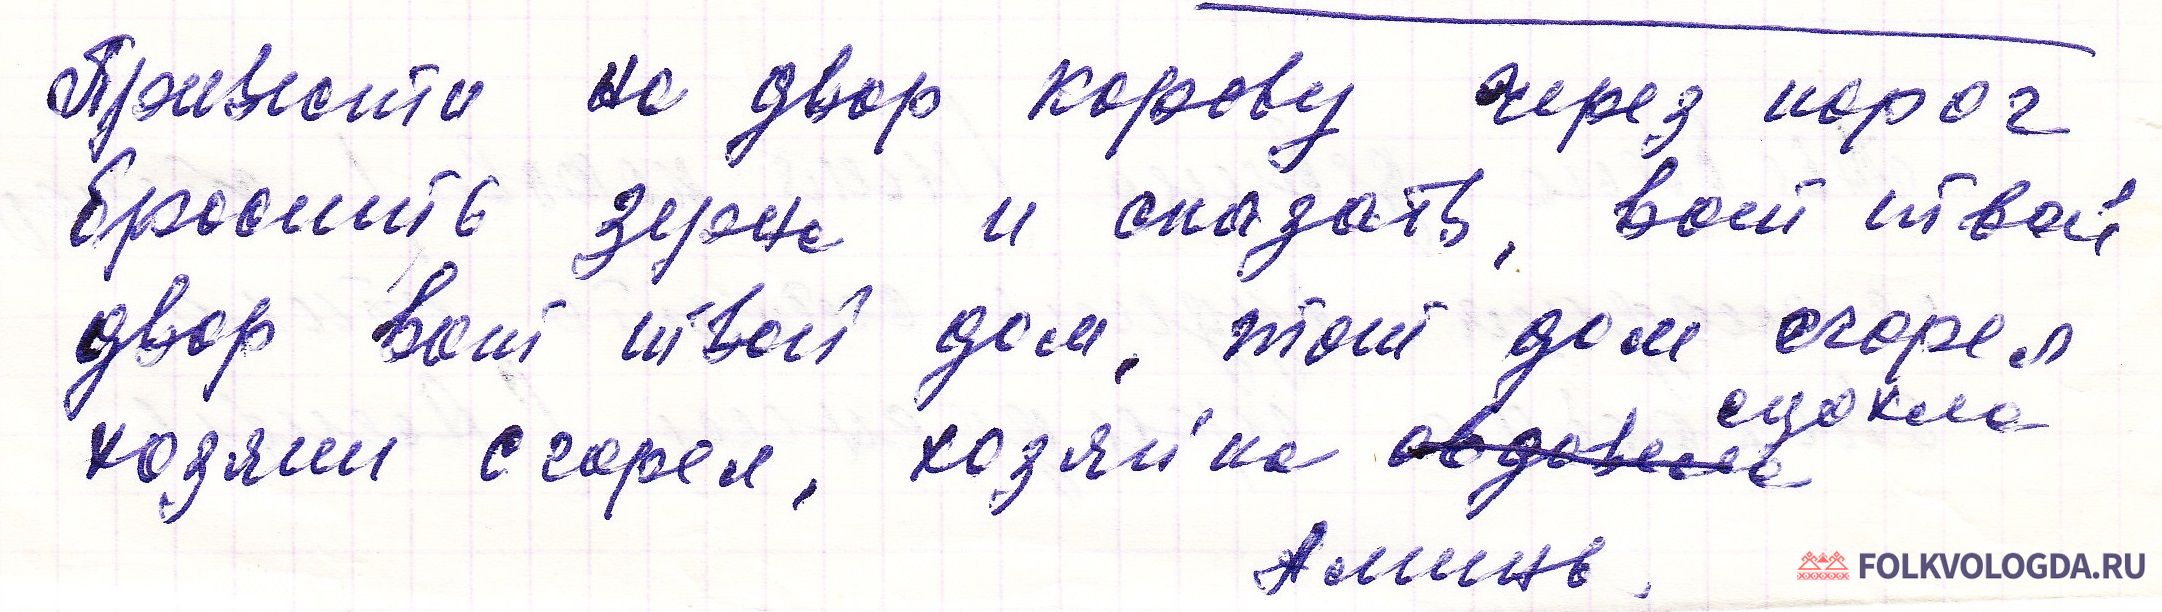 Привести на двор корову через порог
бросить зерна и сказать, вот твой
двор вот твой дом, тот дом сгорел
сдохла
хозяин сгорел, хозяйка овдовела
Аминь.
FOLKVOLOGDA.RU